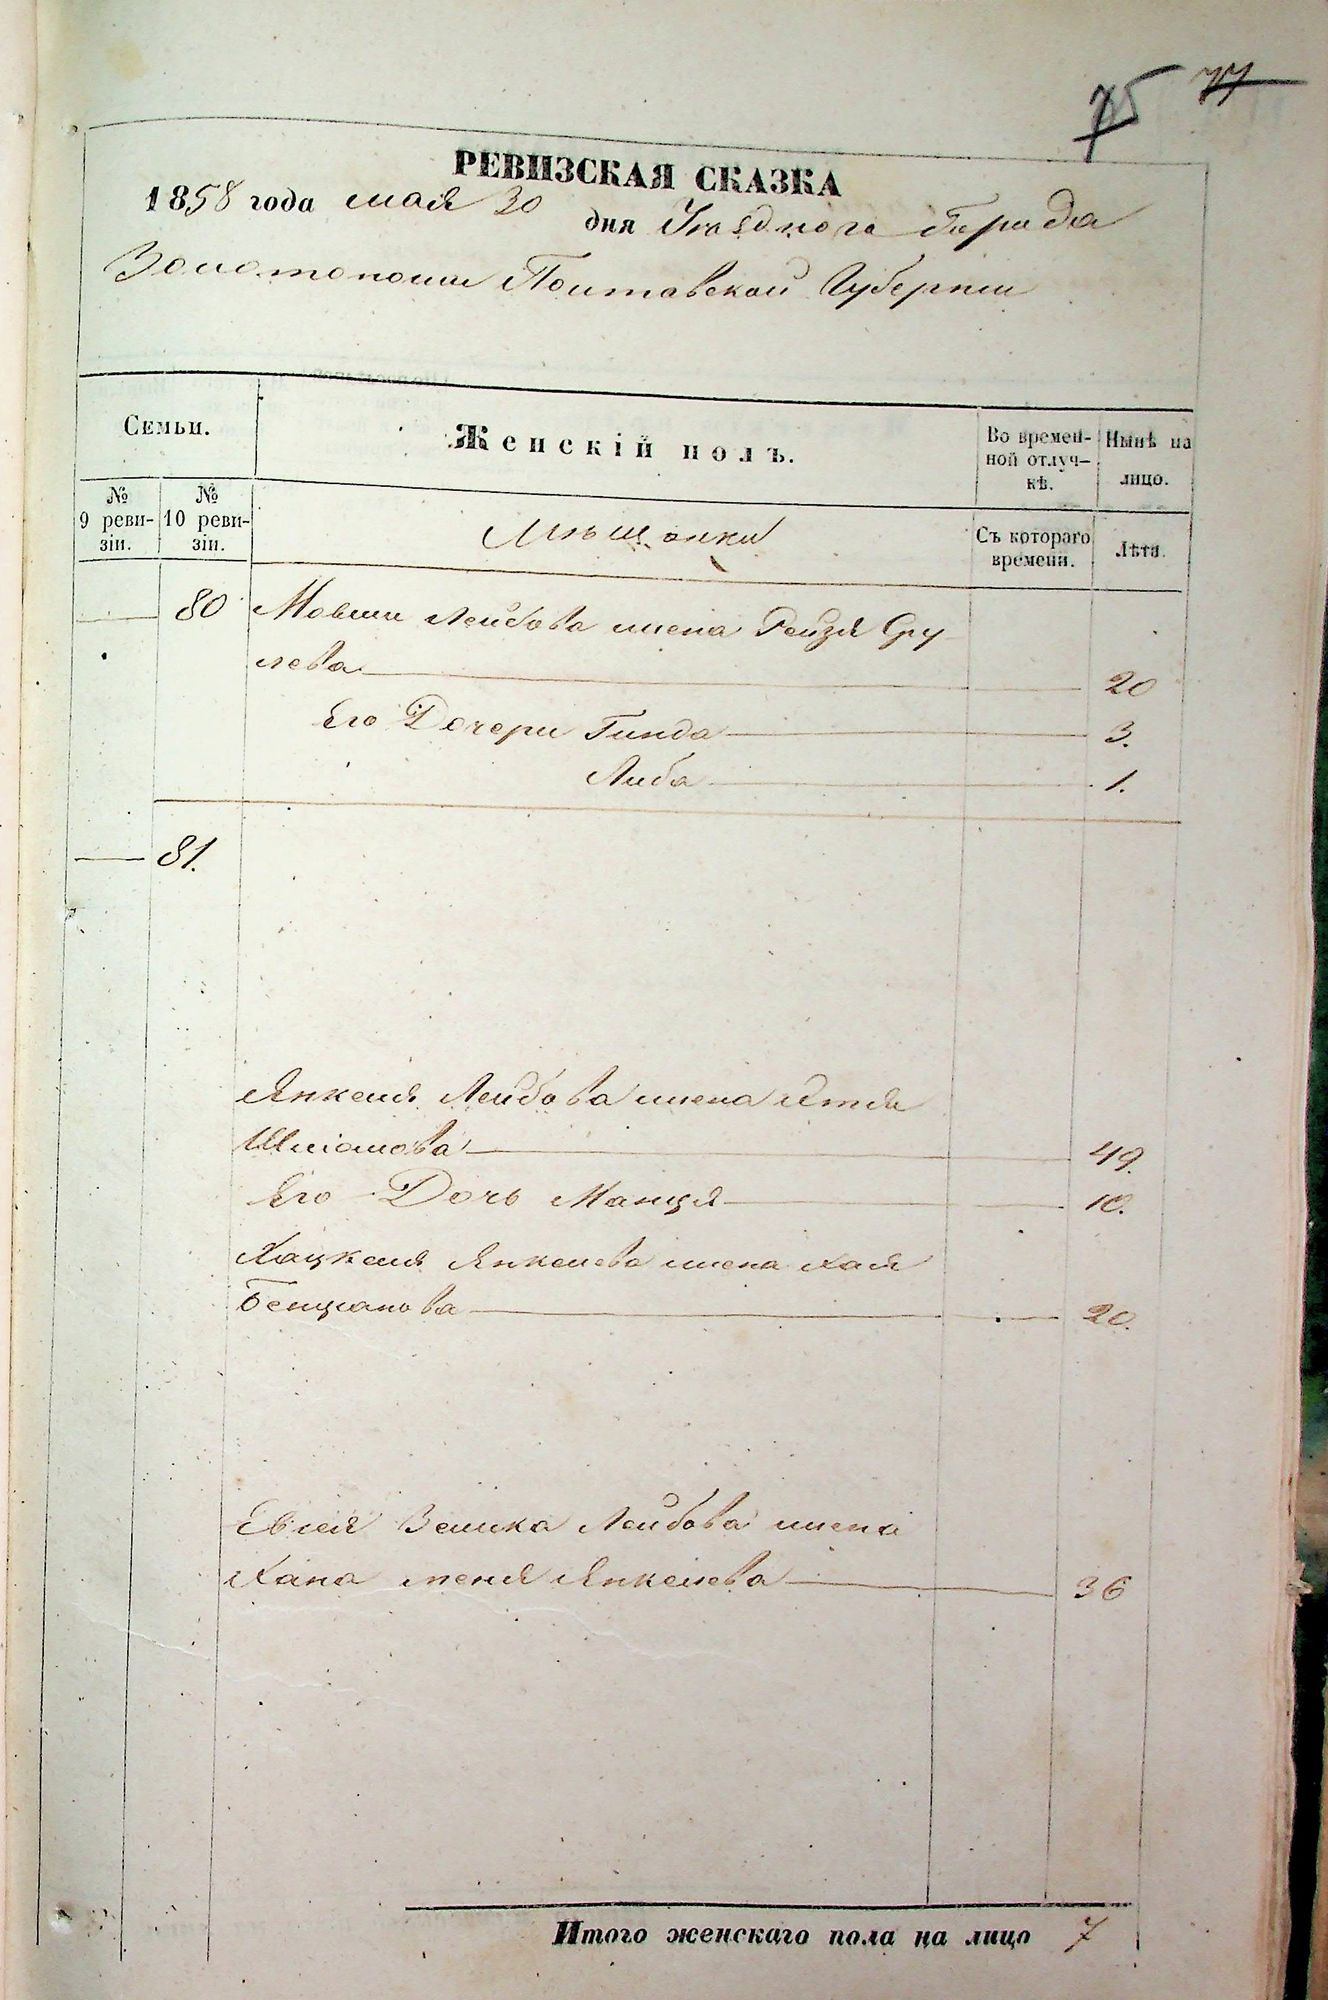 75 77
РЕВИЗСКАЯ СКАЗКА
1858 года мая 30 дня Уѣзднаго Города
Золотоноши Полтавской Губерніи
Семьи.
Женскій полъ.
Во времен-
ной отлуч-
кѣ.
Нынѣ на
лицо.
№
9 реви-
зіи.
№
10 реви-
зіи.
Мѣщанки
Съ котораго
времени.
Лѣта.
80 Мовши Лейбова жена Рейзя Сру
лева 20
Его Дочери Гинда 3.
Либа 1.
81.
Янкеля Лейбова жена Этля
Шліомова 49.
Его ДочьМанця 10.
Хацкеля Янкелева жена Хая
Бенціанова 20.
Евсея Зелика Лейбова жена
Хана Меня Янкелева 36
Итого женскаго пола на лицо 7